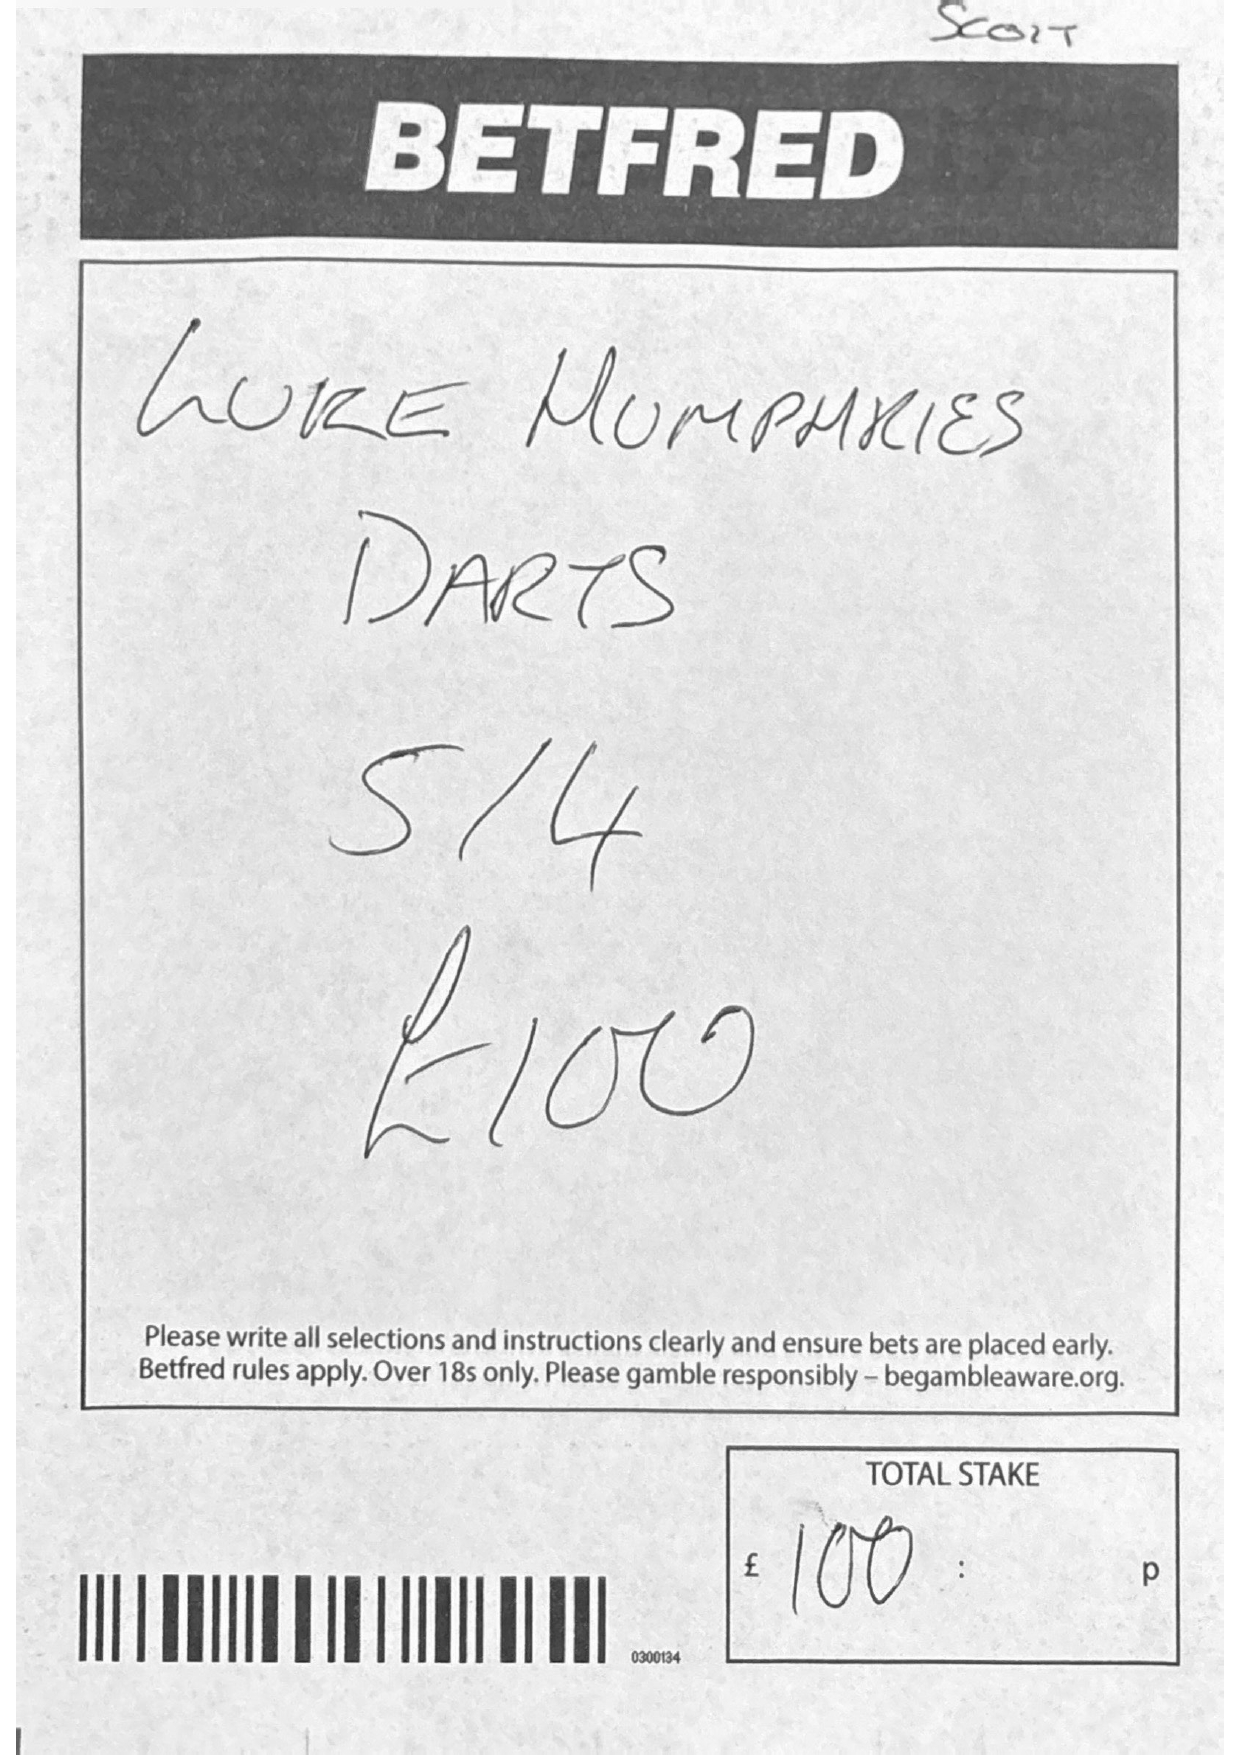 SCOTT
BETFRED
LUKE HUMPHRIES
DARTS
5/4
£100
Please write all selections and instructions clearly and ensure bets are placed early.
Betfred rules apply. Over 18s only. Please gamble responsibly – begambleaware.org.
TOTAL STAKE
£ 100 : p
0300134